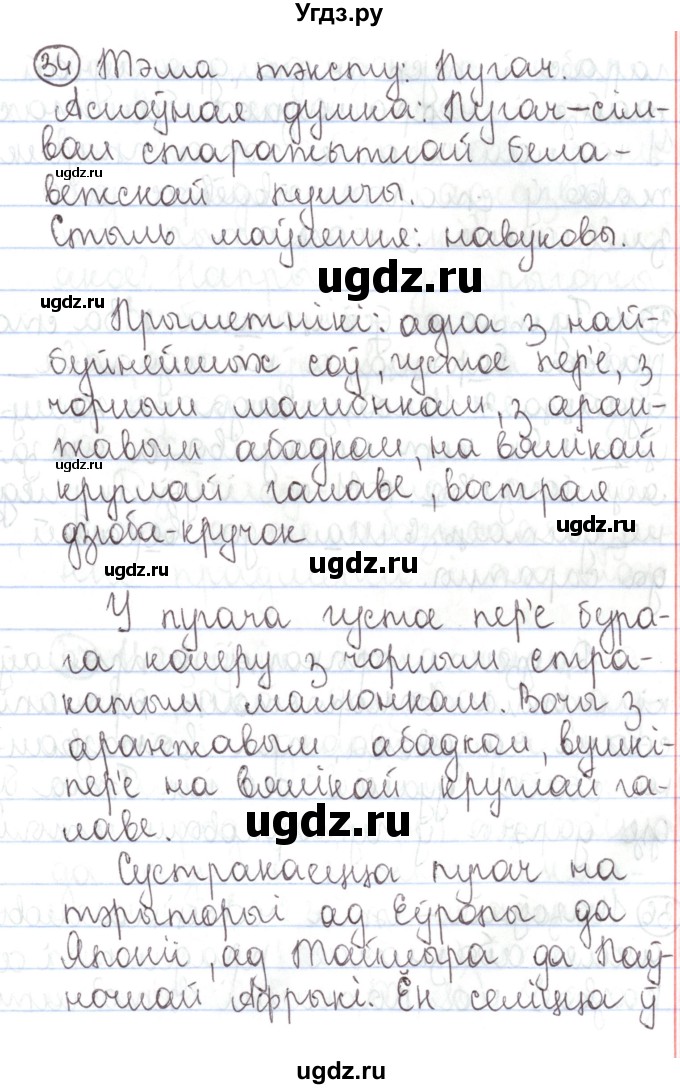 Угдз.ру
34 Тэма тэксту: Пугач.
Асноўная думка: Пугач–сім-
вал старажытнай Бела-
ugdz.ru
вежскай пушчы.
Стыль маўлення: навуковы.
ugdz.ru
ugdz.ru
Прыметнікі: адна з най-
буйнейшых соў, густое пер'е, з
чорным малюнкам, з аран-
жавым абадком, на вялікай
ugdz.ru
круглай галаве, вострая
ugdz.ru
дзюба-кручок
ugdz.ru
ugdz.ru
У пугача густое пер'е бура-
га колеру з чорным стра-
катым малюнкам. Вочы з
аранжавым абадком, вушкі-
пер'е на вялікай круглай га-
лаве.
ugdz.ru
ugdz.ru
Сустракаецца пугач на
тэрыторыі ад Еўропы да
Японіі, ад Таймыра да Паў-
ночнай Афрыкі. Ён селіцца ў
ugdz.ru